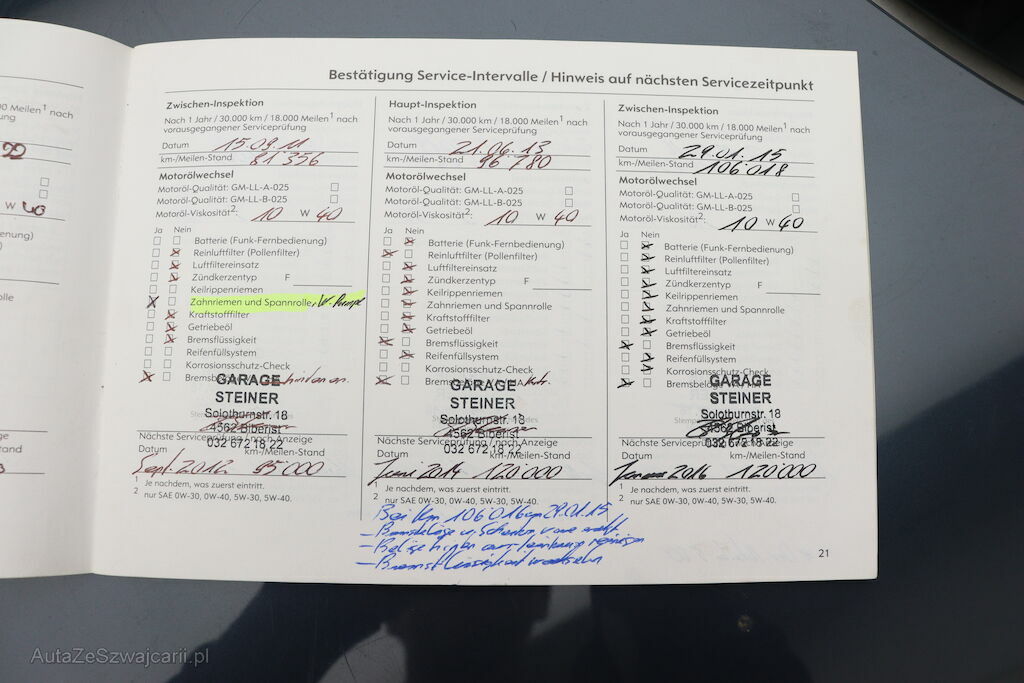 Bestätigung Service-Intervalle / Hinweis auf nächsten Servicezeitpunkt
00 Meilen¹ nach
ung
W 40
enung)
olle
e
tand
Zwischen-Inspektion
Nach 1 Jahr / 30.000 km / 18.000 Meilen¹ nach
vorausgegangener Serviceprüfung
Datum 15.09.11
km-/Meilen-Stand 81'356
Motorölwechsel
Motoröl-Qualität: GM-LL-A-025
Motoröl-Qualität: GM-LL-B-025
Motoröl-Viskosität²: 10 W 40
Ja Nein
Batterie (Funk-Fernbedienung)
Reinluftfilter (Pollenfilter)
Luftfiltereinsatz
Zündkerzentyp F
Keilrippenriemen
Zahnriemen und Spannrolle, W. Pumpe
Kraftstofffilter
Getriebeöl
Bremsflüssigkeit
Reifenfüllsystem
Korrosionsschutz-Check
GARAGE
STEINER
Solothurnstr. 18
4562 Biberist
032 672 18 22
Nächste Serviceprüfung / nach Anzeige
Datum km-/Meilen-Stand
Sept. 2012 95'000
¹ Je nachdem, was zuerst eintritt.
² nur SAE 0W-30, 0W-40, 5W-30, 5W-40.
Haupt-Inspektion
Nach 1 Jahr / 30.000 km / 18.000 Meilen¹ nach
vorausgegangener Serviceprüfung
Datum 21.06.13
km-/Meilen-Stand 96'780
Motorölwechsel
Motoröl-Qualität: GM-LL-A-025
Motoröl-Qualität: GM-LL-B-025
Motoröl-Viskosität²: 10 W 40
Ja Nein
Batterie (Funk-Fernbedienung)
Reinluftfilter (Pollenfilter)
Luftfiltereinsatz
Zündkerzentyp F
Keilrippenriemen
Zahnriemen und Spannrolle
Kraftstofffilter
Getriebeöl
Bremsflüssigkeit
Reifenfüllsystem
Korrosionsschutz-Check
GARAGE
STEINER
Solothurnstr. 18
4562 Biberist
032 672 18 22
Nächste Serviceprüfung / nach Anzeige
Datum km-/Meilen-Stand
Juni 2014 120'000
¹ Je nachdem, was zuerst eintritt.
² nur SAE 0W-30, 0W-40, 5W-30, 5W-40.
Zwischen-Inspektion
Nach 1 Jahr / 30.000 km / 18.000 Meilen¹ nach
vorausgegangener Serviceprüfung
Datum 29.01.15
km-/Meilen-Stand 106'018
Motorölwechsel
Motoröl-Qualität: GM-LL-A-025
Motoröl-Qualität: GM-LL-B-025
Motoröl-Viskosität²: 10 W 40
Ja Nein
Batterie (Funk-Fernbedienung)
Reinluftfilter (Pollenfilter)
Luftfiltereinsatz
Zündkerzentyp F
Keilrippenriemen
Zahnriemen und Spannrolle
Kraftstofffilter
Getriebeöl
Bremsflüssigkeit
Reifenfüllsystem
Korrosionsschutz-Check
GARAGE
STEINER
Solothurnstr. 18
4562 Biberist
032 672 18 22
Nächste Serviceprüfung / nach Anzeige
Datum km-/Meilen-Stand
Januar 2016 120'000
¹ Je nachdem, was zuerst eintritt.
² nur SAE 0W-30, 0W-40, 5W-30, 5W-40.
Bei Km 106'016 am 29.01.15
- Bremsbeläge u. Scheiben vorne
- Beläge hinten
- Bremsflüssigkeit wechseln
21
AutaZeSzwajcarii.pl